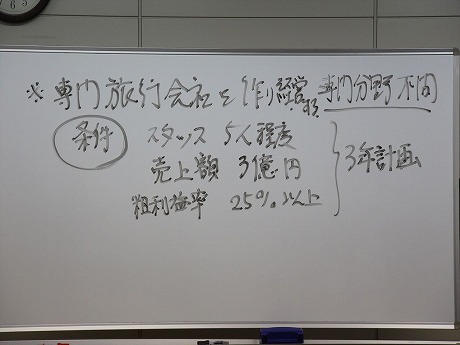 ※専門旅行会社を作り経営 専門分野不問
条件 スタッフ 5人程度
売上額 3億円
粗利益率 25%以上
3年計画